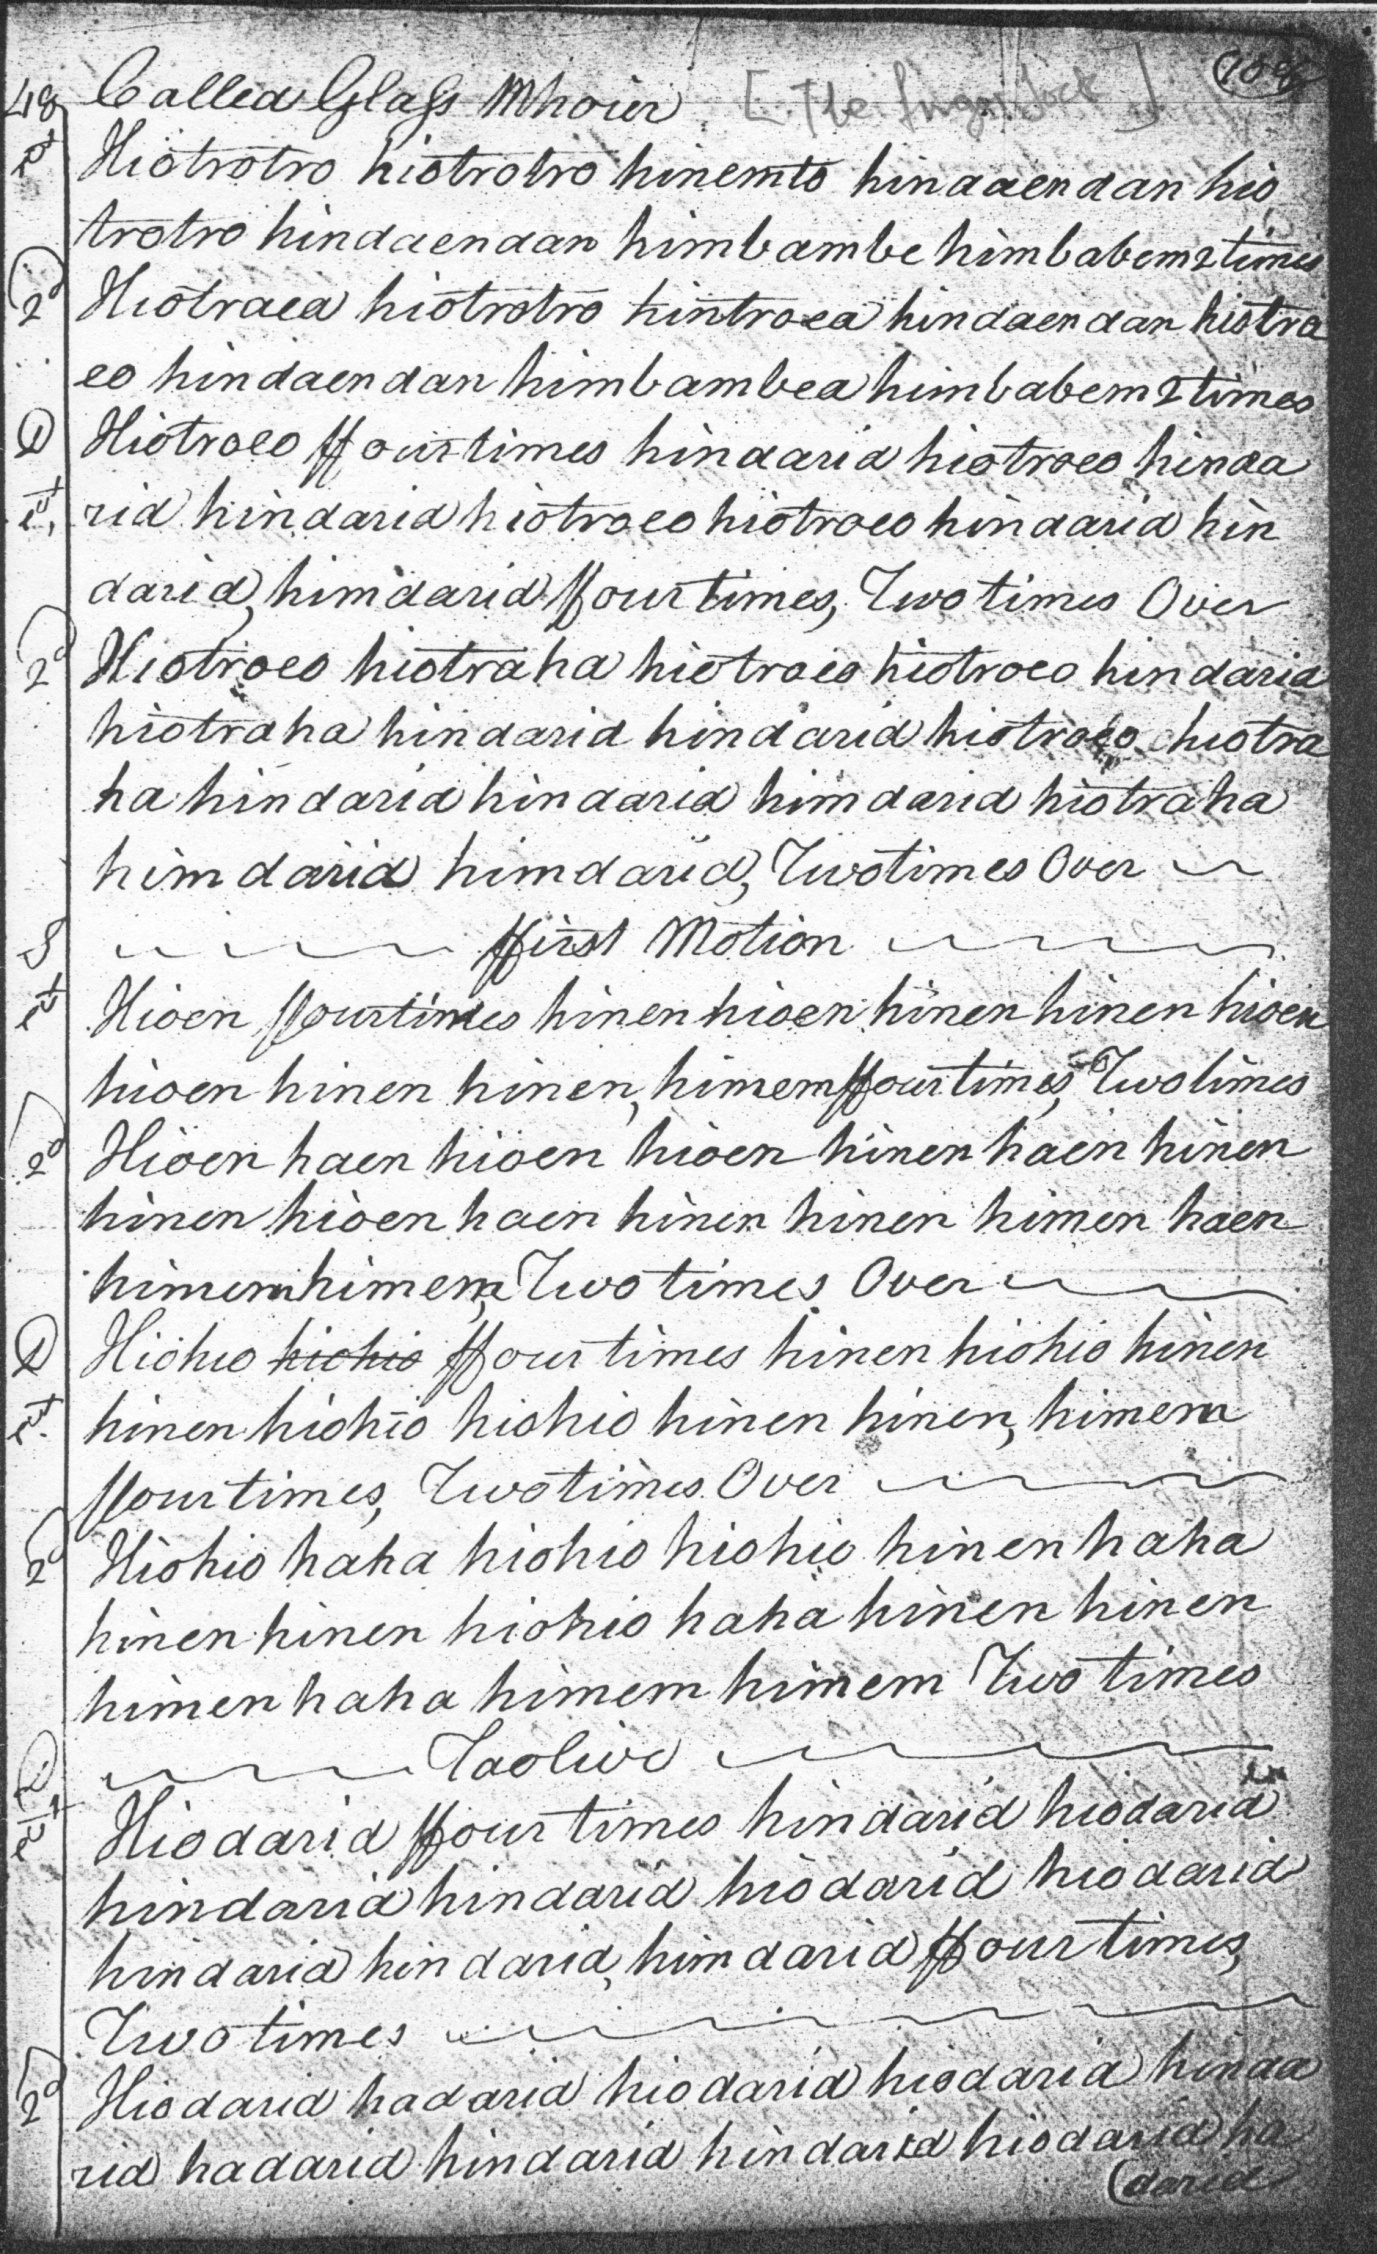 48 Called Glass Mhoier [The
1st Hiotrotro hiotrotro hinemto hindaendan hio
trotro hindaendan himbambe himbabem 2 times
2d Hiotraea hiotrotro hintroea hindaendan hiotra
eo hindaendan himbambea himbabem 2 times
D Hiotroeo ffourtimes hindarid hiotroeo hinda
1st rid hindarid hiotroeo hiotroeo hindarid hin
darid, himdarid ffourtimes, Two times Over
2d Hiotroeo hiotraha hiotroeo hiotroeo hindarid
hiotraha hindarid hindarid hiotroeo hiotra
ha hindarid hindarid himdarid hiotraha
himdarid himdarid, Twotimes Over
S ffirst Motion
1st Hioen ffourtimes hinen hioen hinen hinen hioen
hioen hinen hinen, himem ffourtimes, Twotimes
2d Hioen haen hioen hioen hinen haen hinen
hinen hioen haen hinen hinen himen haen
himem himem, Two times Over
D Hiohio hiohio ffour times hinen hiohio hinen
1st hinen hiohio hiohio hinen hinen, himem
ffourtimes, Twotimes Over
2d Hiohio haha hiohio hiohio hinen haha
hinen hinen hiohio haha hinen hinen
himen haha himem himem Two times
D Taolive
1st Hiodarid ffour times hindarid hiodarid
hindarid hindarid hiodarid hiodarid
hindarid hindarid, himdarid ffour times,
Two times
2d Hiodarid hadarid hiodarid hiodarid hinda
rid hadarid hindarid hindarid hiodarid ha
(darid